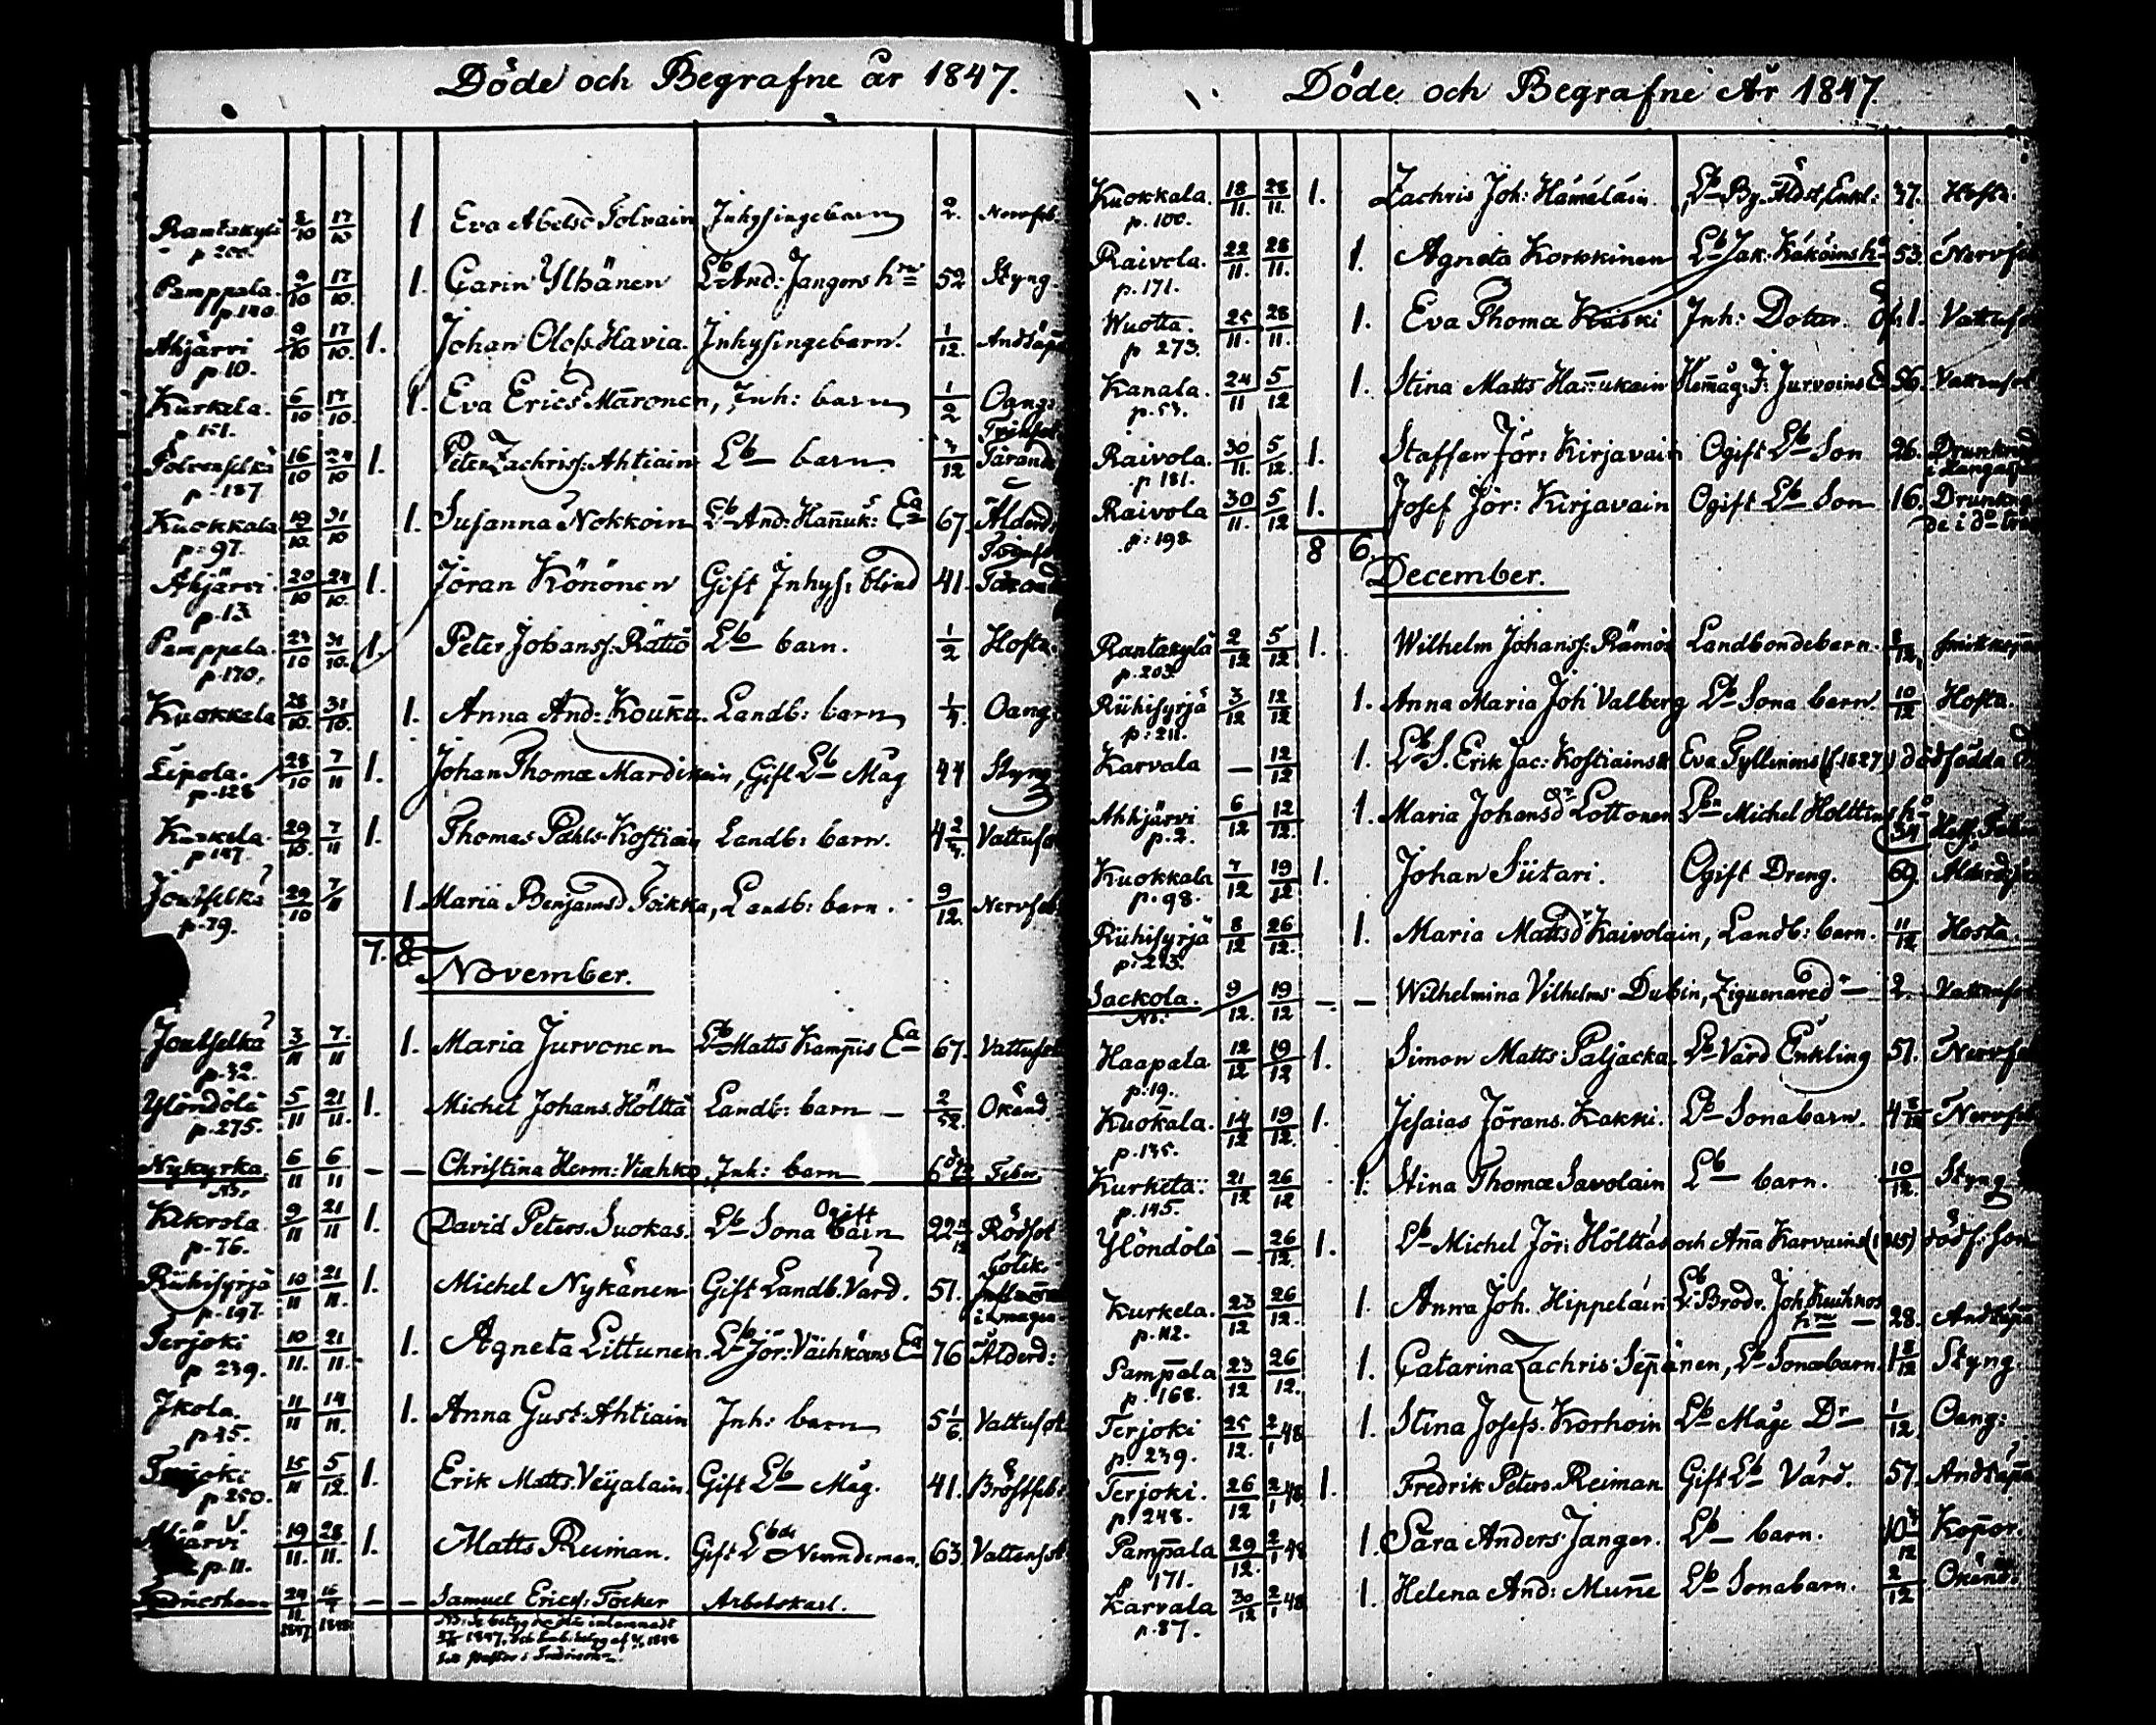 Döde och Begrafne år 1847.
Rantakylä 2/10 17/10 1 Eva Abelsd Tolvain Inhysingebarn Nervfeb
p 200.
Pamppala. 9/10 17/10. 1. Carin Ylhänen Lb And: Jangers hru 52 Styng.
p.180.
Ahjärvi 9/10 17/10. 1. Johan Olofs. Havia. Inhysingebarn. 1/12. Andtäpp
p.10.
Kurkela. 6/10 17/10. 1. Eva Ericsd Maronen, Inh: barn 1/2 Oang:
p.151.
16/10 24/10 1. Peter Zachriss: Ahtiain Lb barn /12
p.187
Kuokkala 19/10. 31/10 1. Susanna Nokkoin Lb And: Hannuk: Ea 67. Ålderd:
p:97.
Ahjärvi 20/10 24/10. 1. Jöran Könönen Gift Inhys: blind 41.
p.13
Pamppala. 23/10 31/10. 1. Peter Johanss. Rättö Lb barn. 1/2 Hosta.
p.170,
Kuokkala 28/10. 31/10. 1. Anna And: Kouku. Landb: barn Oang:
Lipola. 28/10 7/11 1. Johan Thomæ Mardikain, Gift Lb Måg 44 Styng
p.128
Kurkela. 29/10. 7/11 1. Thomas Pahls. Kostiain Landb: barn. Vattusot
p.147.
Joutselkä 29/10 7/11 1. Maria Benjamsd Toikka, Landb: barn. 9/12. Nervfeb
p.79.
7. 8.
November.
Joutselkä 3/11 7/11 1. Maria Jurvonen Lb Matts Kampis Ea 67. Vattusot
p.32.
Ylöndölä 5/11 21/11. 1. Michel Johans. Hölttä Landb: barn 2/52. Okänd
p.275.
Nykyrka. 6/11 6/11 – – Christina Herm: Viahko, Inh: barn Feber.
Nb.
Kekrola. 9/11 21/11 1. David Peters. Suokas. Lb Sona Ogift barn Rödsot
p.76.
Riihisyrjä 10/11 21/11. 1. Michel Nykänen Gift Landb. Värd. 51.
p.197. i magen
Terjoki 10/11. 21/11. 1. Agneta Littunen. Lb Jör: Väihköins Ea 76 Ålderd:
p 239.
Ikola. 11/11 14/11. 1. Anna Gust: Ahtiain Inh: barn 5 1/6. Vattusot
p.45.
Terjoki 15/11 5/12. 1. Erik Matts. Veijalain. Gift Lb Måg. 41. Bröstfeb:
p.250.
19/11. 28/11. 1. Matts Reiman. Gift Lb Nemndeman. 63. Vattensot
p.11.
Fredricsham 24/11. 1847 1848 – – Samuel Ericss: Tocker Arbetskarl.
Döde och Begrafne År 1847.
Kuokkala. 18/11. 28/11. 1. Zachris Joh: Hämäläin. Lb By. Åldst, Enkl: 37. Hosta.
p.100.
Raivola. 22/11. 28/11. 1. Agneta Korkkinen Lb Jak: Käköins 53. Nervfeb
p.171.
Wuotta. 25/11. 28/11. 1. Eva Thomæ Kaski Inh: Doter. 1. Vattusot
p 273.
Kanala. 24/11 5/12 1. Stina Matts Hannukain Hemåg: J: Jurvoins E 56. Vattensot
p.53.
Raivola. 30/11. 5/12. 1. Staffan Jör: Kirjavain Ogift Lb Son 26. Drunknad
p.181.
Raivola 30/11. 5/12 1. Josef Jör: Kirjavain Ogift Lb Son 16.
p:198
8 6.
December.
Rantakylä 2/12 5/12 1. Wilhelm Johanss: Rämös Landbondebarn.
p.203.
Riihisyrjä 3/12 12/12 1. Anna Maria Joh Valberg Lb Sona barn. 10/12 Hosta.
p:211.
Karvala – 12/12 1. Lb S. Erik Jac: Kostiains & Eva Tyllinens (f.1827) dödfödda
Ahkjärvi 6/12 12/12. 1. Maria Johansdr Lottonen Lbn Michel Holttins 34
p.2.
Kuokkala 7/12 19/12 1. Johan Siitari. Ogift Dreng. 69.
p.98.
Riihisyrjä 8/12 26/12. 1. Maria Mattsdr Kaivolain, Landb: barn. 11/12 Hosta.
p:213.
Sackola. 9/12. 19/12 – – Wilhelmina Vilhelms Dubin, 2. Vattensot
Nb.
Haapala. 12/12 19/12 1. Simon Matts Paljacka. Lb Värd Enkling 51. Nervfeb
p.19.
Kuokala. 14/12 19/12. 1. Jesaias Jörans. Kakki. Lb Sonabarn. Nervfeb
p.135.
Kurkela. 21/12 26/12 1. Stina Thomæ Savolain Lb barn. 10/12. Styng
p.145.
Ylöndölä – 26/12. 1. Lb Michel Jör: Hölttäs och Anna Karvains
Kurkela. 23/12 26/12. 1. Anna Joh. Hippeläin Lb: Brodr. Joh. hru 28. Andtäppa
p.112.
Pampala 23/12 26/12. 1. Catarina Zachris Seppänen, Lb Sonabarn. 1 8/12 Styng.
p.168.
Terjoki 25/12. 2/1 48 1. Stina Josefs. Korhoin Lb Mågs Dr 1/12 Oang:
p.239.
Terjoki. 26/12 2/1 48 1. Fredrik Peters. Reiman Gift Lb Värd. 57. Andtäppa
p.248.
Pampala 29/12. 2/1 48 1. Sara Anders Janger. Lb barn. Kopor.
p 171.
Karvala 30/12 2/1 48 1. Helena And: Munne Lb Sonabarn. 2/12 Okänd:
p.87.